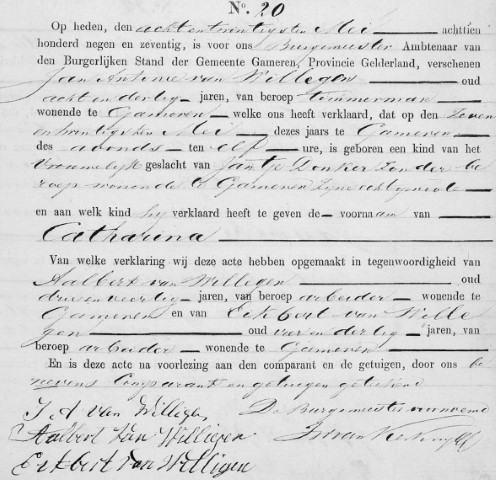 No. 20
Op heden, den acht en twintigsten Mei achttien
honderd negen en zeventig, is voor ons Burgemeester Ambtenaar
van den Burgerlijken Stand der Gemeente Gameren, Provincie Gelderland, verschenen
Jan Antonie van Willegen oud
acht en dertig jaren, van beroep timmerman
wonende te Gameren welke ons heeft verklaard, dat op den zeven
en twintigsten Mei dezes jaars te Gameren
des avonds ten elf ure, is geboren een kind van het
vrouwelijk geslacht van Jantje Donker zonder be
roep wonende te Gameren zijne echtgenoote
en aan welk kind hij verklaard heeft te geven de voornaam van
Catharina
Van welke verklaring wij deze acte hebben opgemaakt in tegenwoordigheid van
Aalbert van Willegen oud
drie en veertig jaren, van beroep arbeider wonende te
Gameren en van Eckbert van Wille
gen oud vier en dertig jaren, van
beroep arbeider wonende te Gameren
En is deze acte na voorlezing aan den comparant en de getuigen, door ons be
nevens comparant en getuigen geteekend
J A van Willigen De Burgemeester voornoemd
Aalbert van Willigen
Eckbert van Willigen